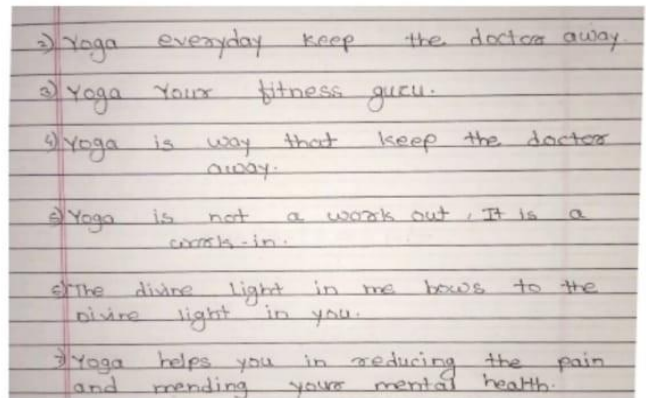 2) Yoga everyday keep the doctor away.
3) Yoga Your fitness guru.
4) Yoga is way that keep the doctor
away.
5) Yoga is not a work out, It is a
work-in.
6) The divine light in me bows to the
Divine light in you.
7) Yoga helps you in reducing the pain
and mending your mental health.